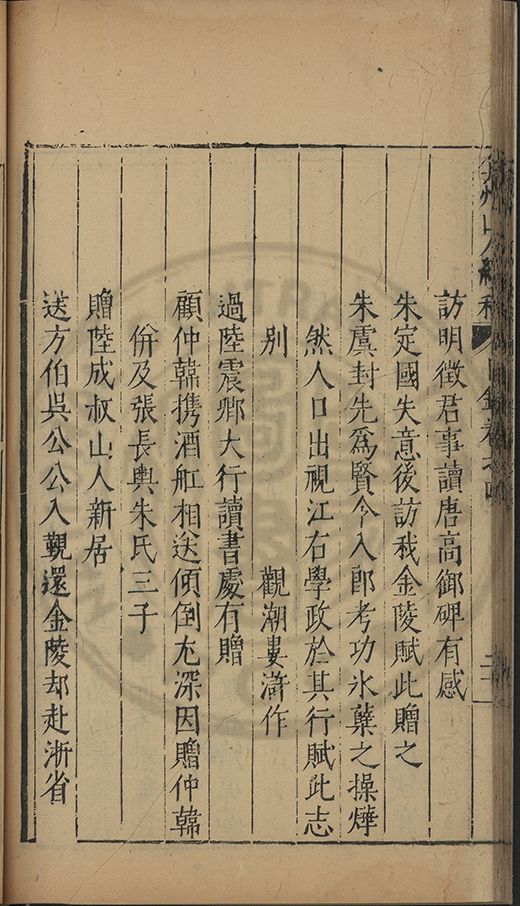 弇州山人續稿 目錄卷之四 二
訪明徵君事讀唐高御碑有感
朱定國失意後訪我金陵賦此贈之
朱虞封先爲賢令入郎考功氷蘖之操燁
然人口出視江右學政於其行賦此志
別 觀潮婁滸作
過陸震卿大行讀書處有贈
顧仲韓携酒舡相送傾倒尤深因贈仲韓
併及張長輿朱氏三子
贈陸成叔山人新居
送方伯吳公公入覲還金陵却赴浙省